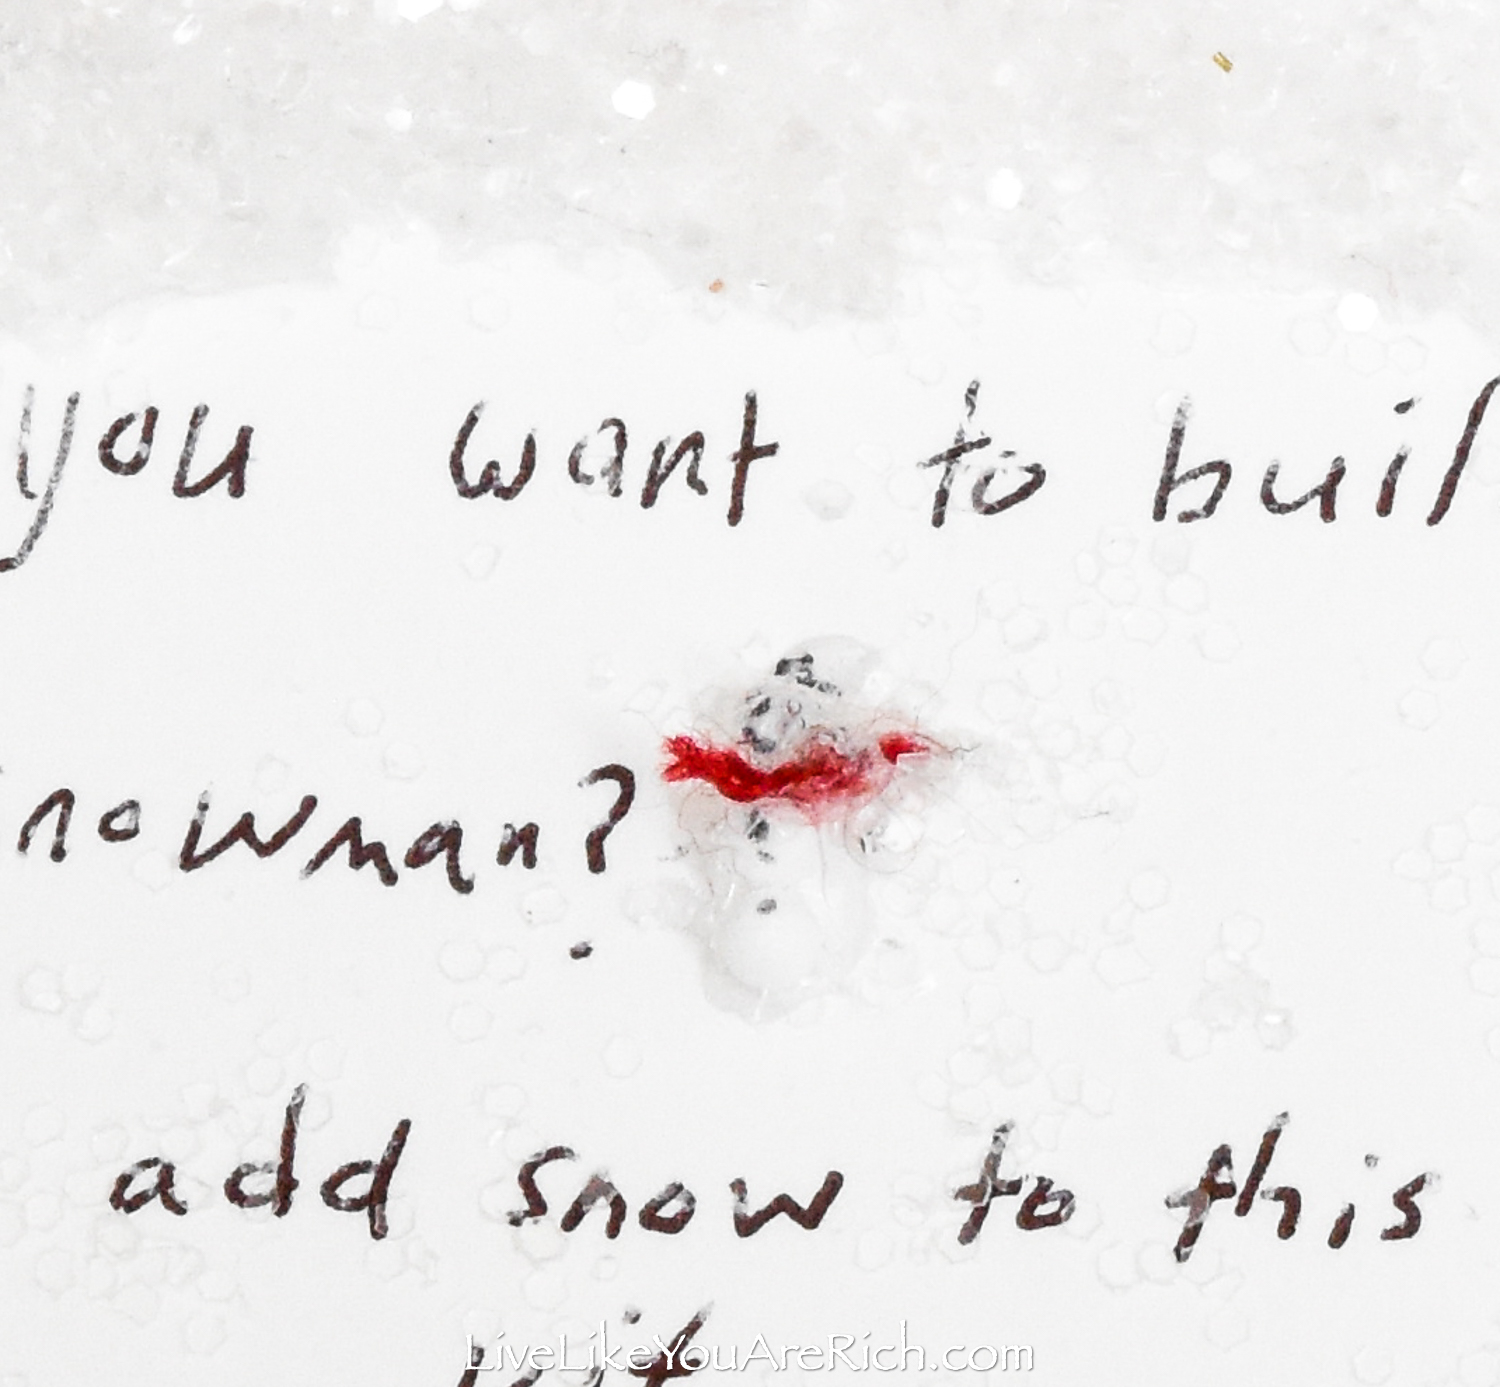 you want to buil
nowman?
add snow to this
LiveLikeYouAreRich.com